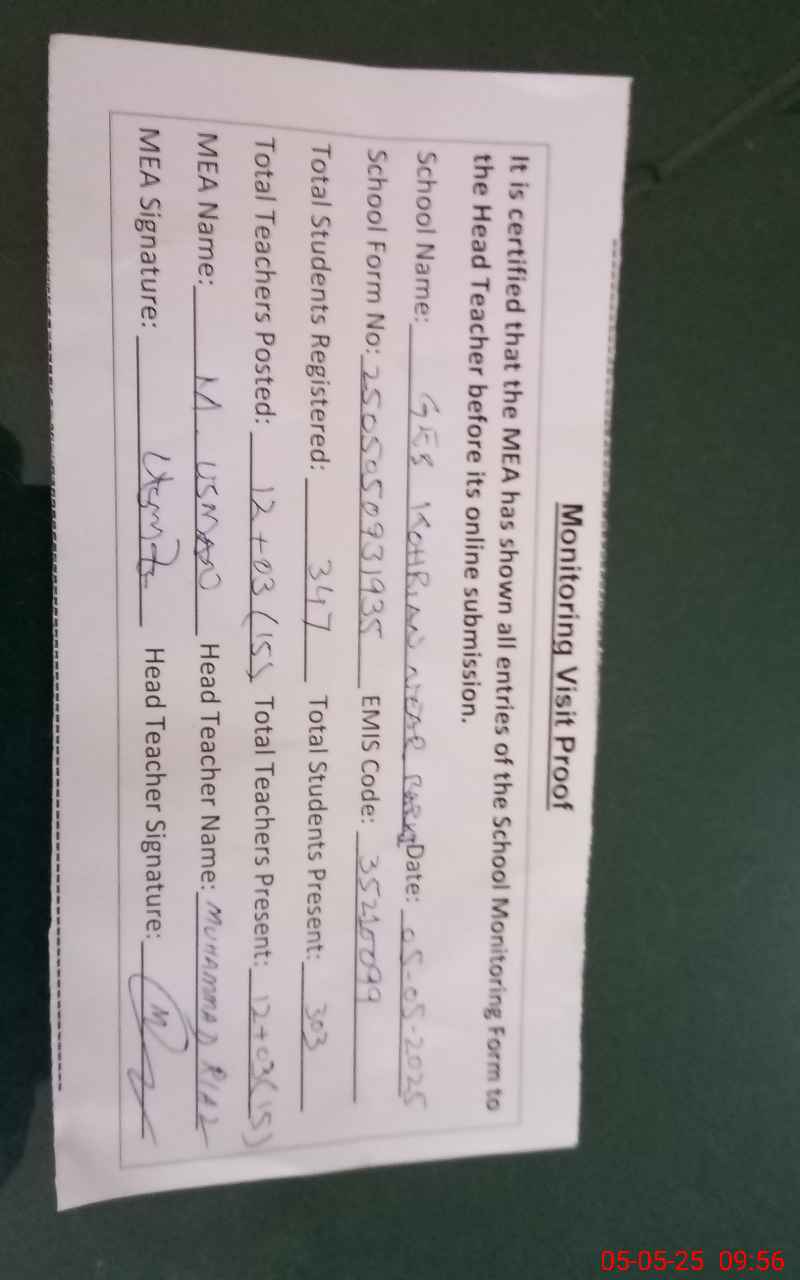 Monitoring Visit Proof
It is certified that the MEA has shown all entries of the School Monitoring Form to
the Head Teacher before its online submission.
School Name: GES KOHRIAN NEAR Date: 05-05-2025
School Form No: 2505050931935 EMIS Code: 35210099
Total Students Registered: 347 Total Students Present: 303
Total Teachers Posted: 12+03(15) Total Teachers Present: 12+03(15)
MEA Name: M. USMAN Head Teacher Name: MUHAMMAD RIAZ
MEA Signature: Head Teacher Signature:
05-05-25 09:56